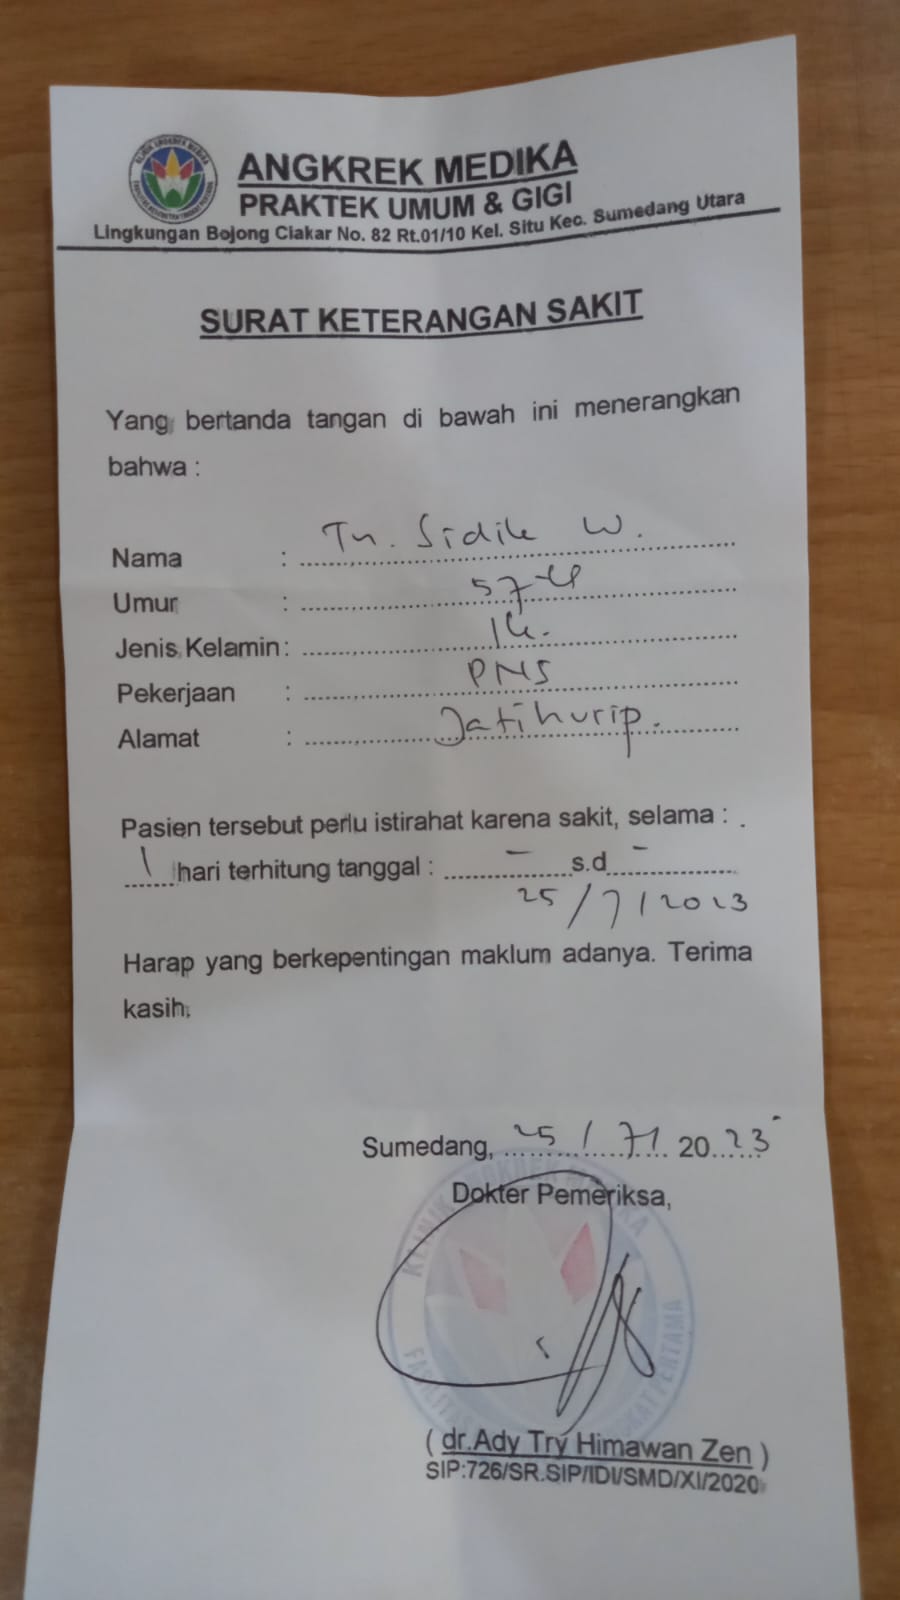 ANGKREK MEDIKA
PRAKTEK UMUM & GIGI
Lingkungan Bojong Ciakar No. 82 Rt.01/10 Kel. Situ Kec. Sumedang Utara
SURAT KETERANGAN SAKIT
Yang bertanda tangan di bawah ini menerangkan
bahwa :
Nama : Tn. Sidik W.
Umur : 57
Jenis Kelamin :
Pekerjaan : PNS
Alamat : Jatihurip.
Pasien tersebut perlu istirahat karena sakit, selama :
1 hari terhitung tanggal : - s.d -
25/7/2023
Harap yang berkepentingan maklum adanya. Terima
kasih.
Sumedang, 25/7/ 2023
Dokter Pemeriksa,
KLINIK ANGKREK MEDIKA
( dr.Ady Try Himawan Zen )
SIP:726/SR.SIP/IDI/SMD/XI/2020